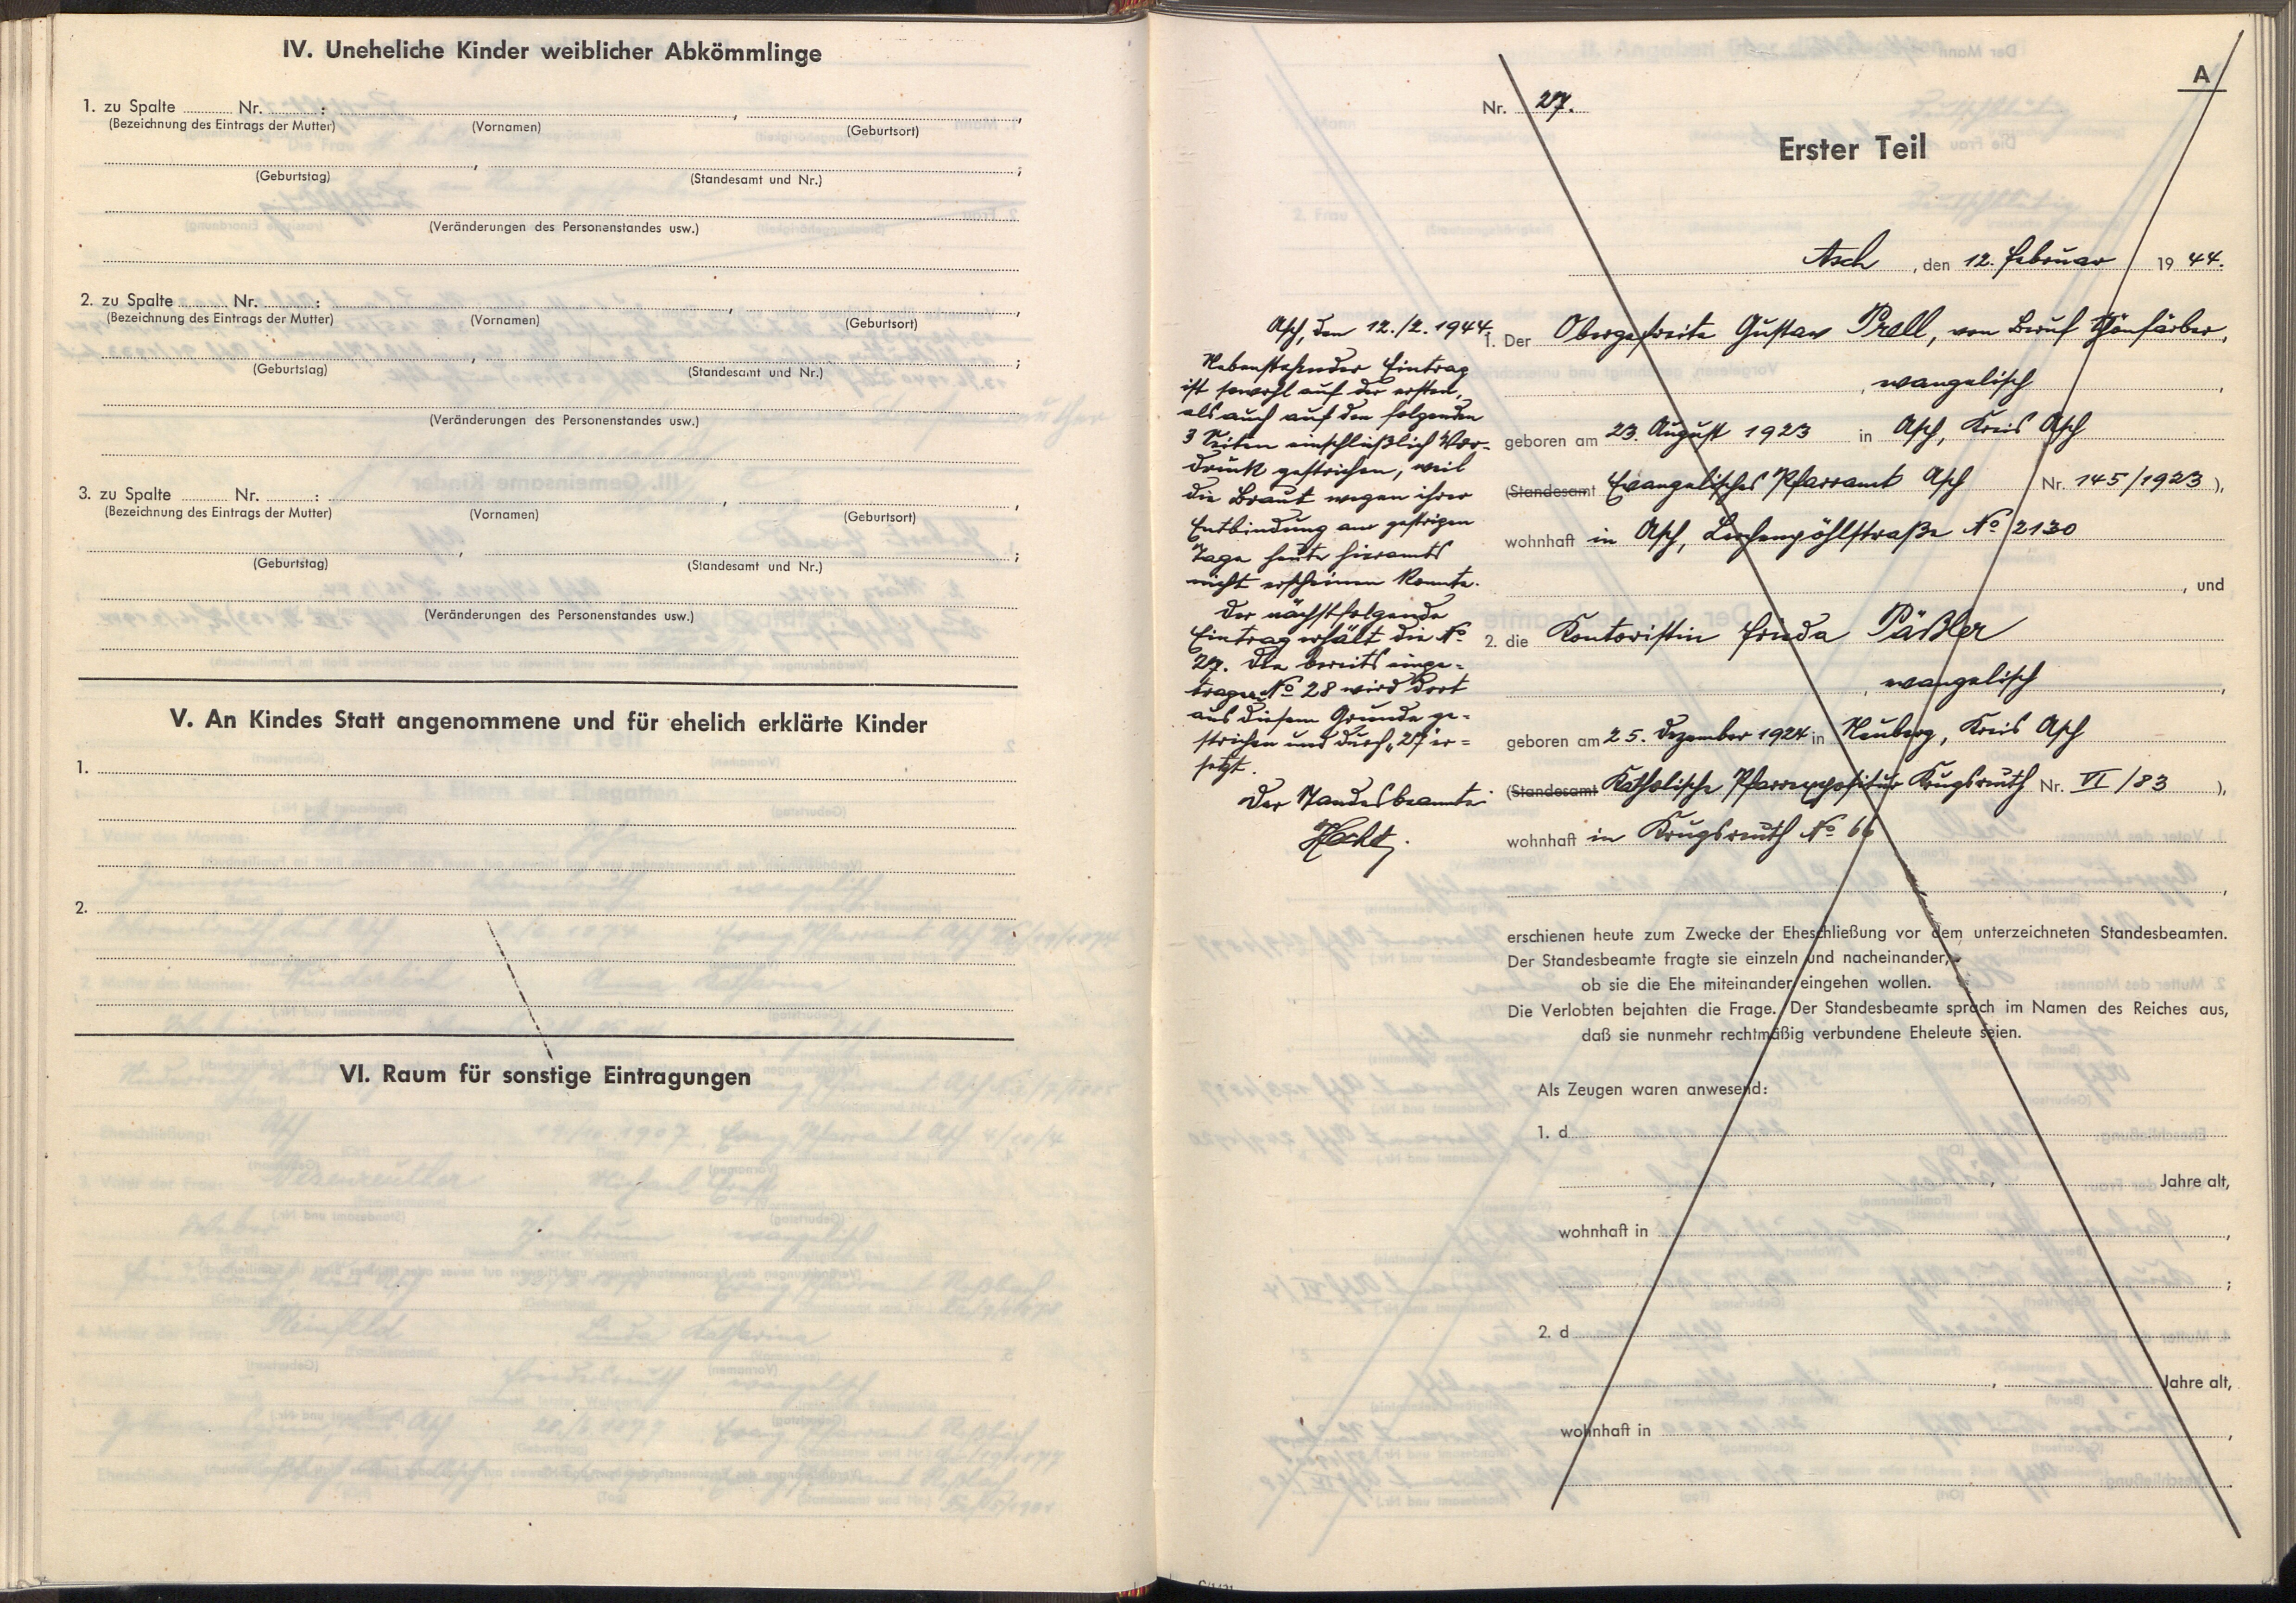 IV. Uneheliche Kinder weiblicher Abkömmlinge
1. zu Spalte Nr. : , ,
(Bezeichnung des Eintrags der Mutter) (Vornamen) (Geburtsort)
, ;
(Geburtstag) (Standesamt und Nr.)
(Veränderungen des Personenstandes usw.)
2. zu Spalte Nr. : , ,
(Bezeichnung des Eintrags der Mutter) (Vornamen) (Geburtsort)
, ;
(Geburtstag) (Standesamt und Nr.)
(Veränderungen des Personenstandes usw.)
3. zu Spalte Nr. : , ,
(Bezeichnung des Eintrags der Mutter) (Vornamen) (Geburtsort)
, ;
(Geburtstag) (Standesamt und Nr.)
(Veränderungen des Personenstandes usw.)
V. An Kindes Statt angenommene und für ehelich erklärte Kinder
1.
2.
VI. Raum für sonstige Eintragungen
A
Nr. 27.
Erster Teil
Asch, den 12. Februar 1944.
Asch, den 12./2. 1944.
Nebenstehender Eintrag
ist sowohl auf der ersten,
als auch auf den folgenden
3 Seiten einschließlich Vor-
druck gestrichen, weil
die Braut wegen ihrer
Entbindung am gestrigen
Tage heute hieramts
nicht erscheinen konnte.
Der nächstfolgende
Eintrag erhält die No
27. Die bereits einge-
tragene No 28 wird dort
aus diesem Grunde ge-
strichen und durch „27" er-
setzt.
Der Standesbeamte
Hecht.
1. Der Obergefreite Gustav Prell, von Beruf Schönfärber,
, evangelisch ,
geboren am 23. August 1923 in Asch, Kreis Asch
(Standesamt Evangelisches Pfarramt Asch Nr. 145/1923 ),
wohnhaft in Asch, Lerchenpöhlstraße No 2130
, und
2. die Kontoristin Frida Päßler
, evangelisch ,
geboren am 25. Dezember 1924 in Neuberg, Kreis Asch
(Standesamt Katholische Pfarrexpositur Krugsreuth Nr. VI/83 ),
wohnhaft in Krugsreuth No 66
,
erschienen heute zum Zwecke der Eheschließung vor dem unterzeichneten Standesbeamten.
Der Standesbeamte fragte sie einzeln und nacheinander,
ob sie die Ehe miteinander eingehen wollen.
Die Verlobten bejahten die Frage. Der Standesbeamte sprach im Namen des Reiches aus,
daß sie nunmehr rechtmäßig verbundene Eheleute seien.
Als Zeugen waren anwesend:
1. d
, Jahre alt,
wohnhaft in ,
;
2. d
, Jahre alt,
wohnhaft in ,